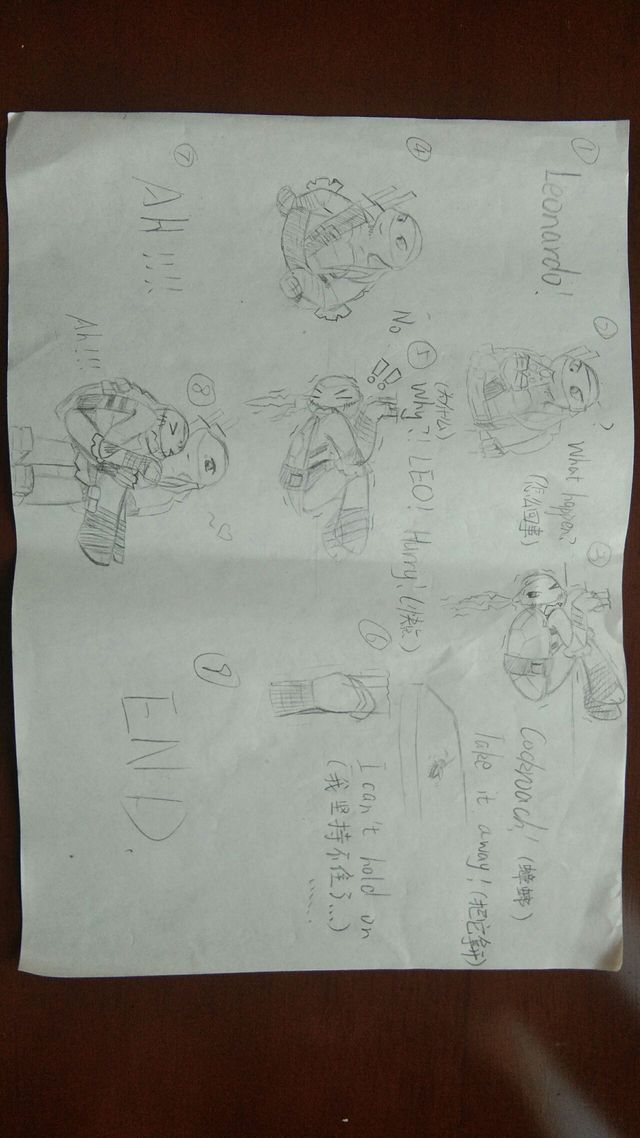 ①
Leonardo!
②
?
What happen?
(怎么回事)
③
Cockroach! (蟑螂)
Take it away! (把它拿开)
④
No.
⑤
!?!
(为什么)
Why?! LEO! Hurry! (快点)
⑥
I can't hold on
(我坚持不住了...)
......
⑦
AH!!!!
⑧
Ah!!!
⑨
END